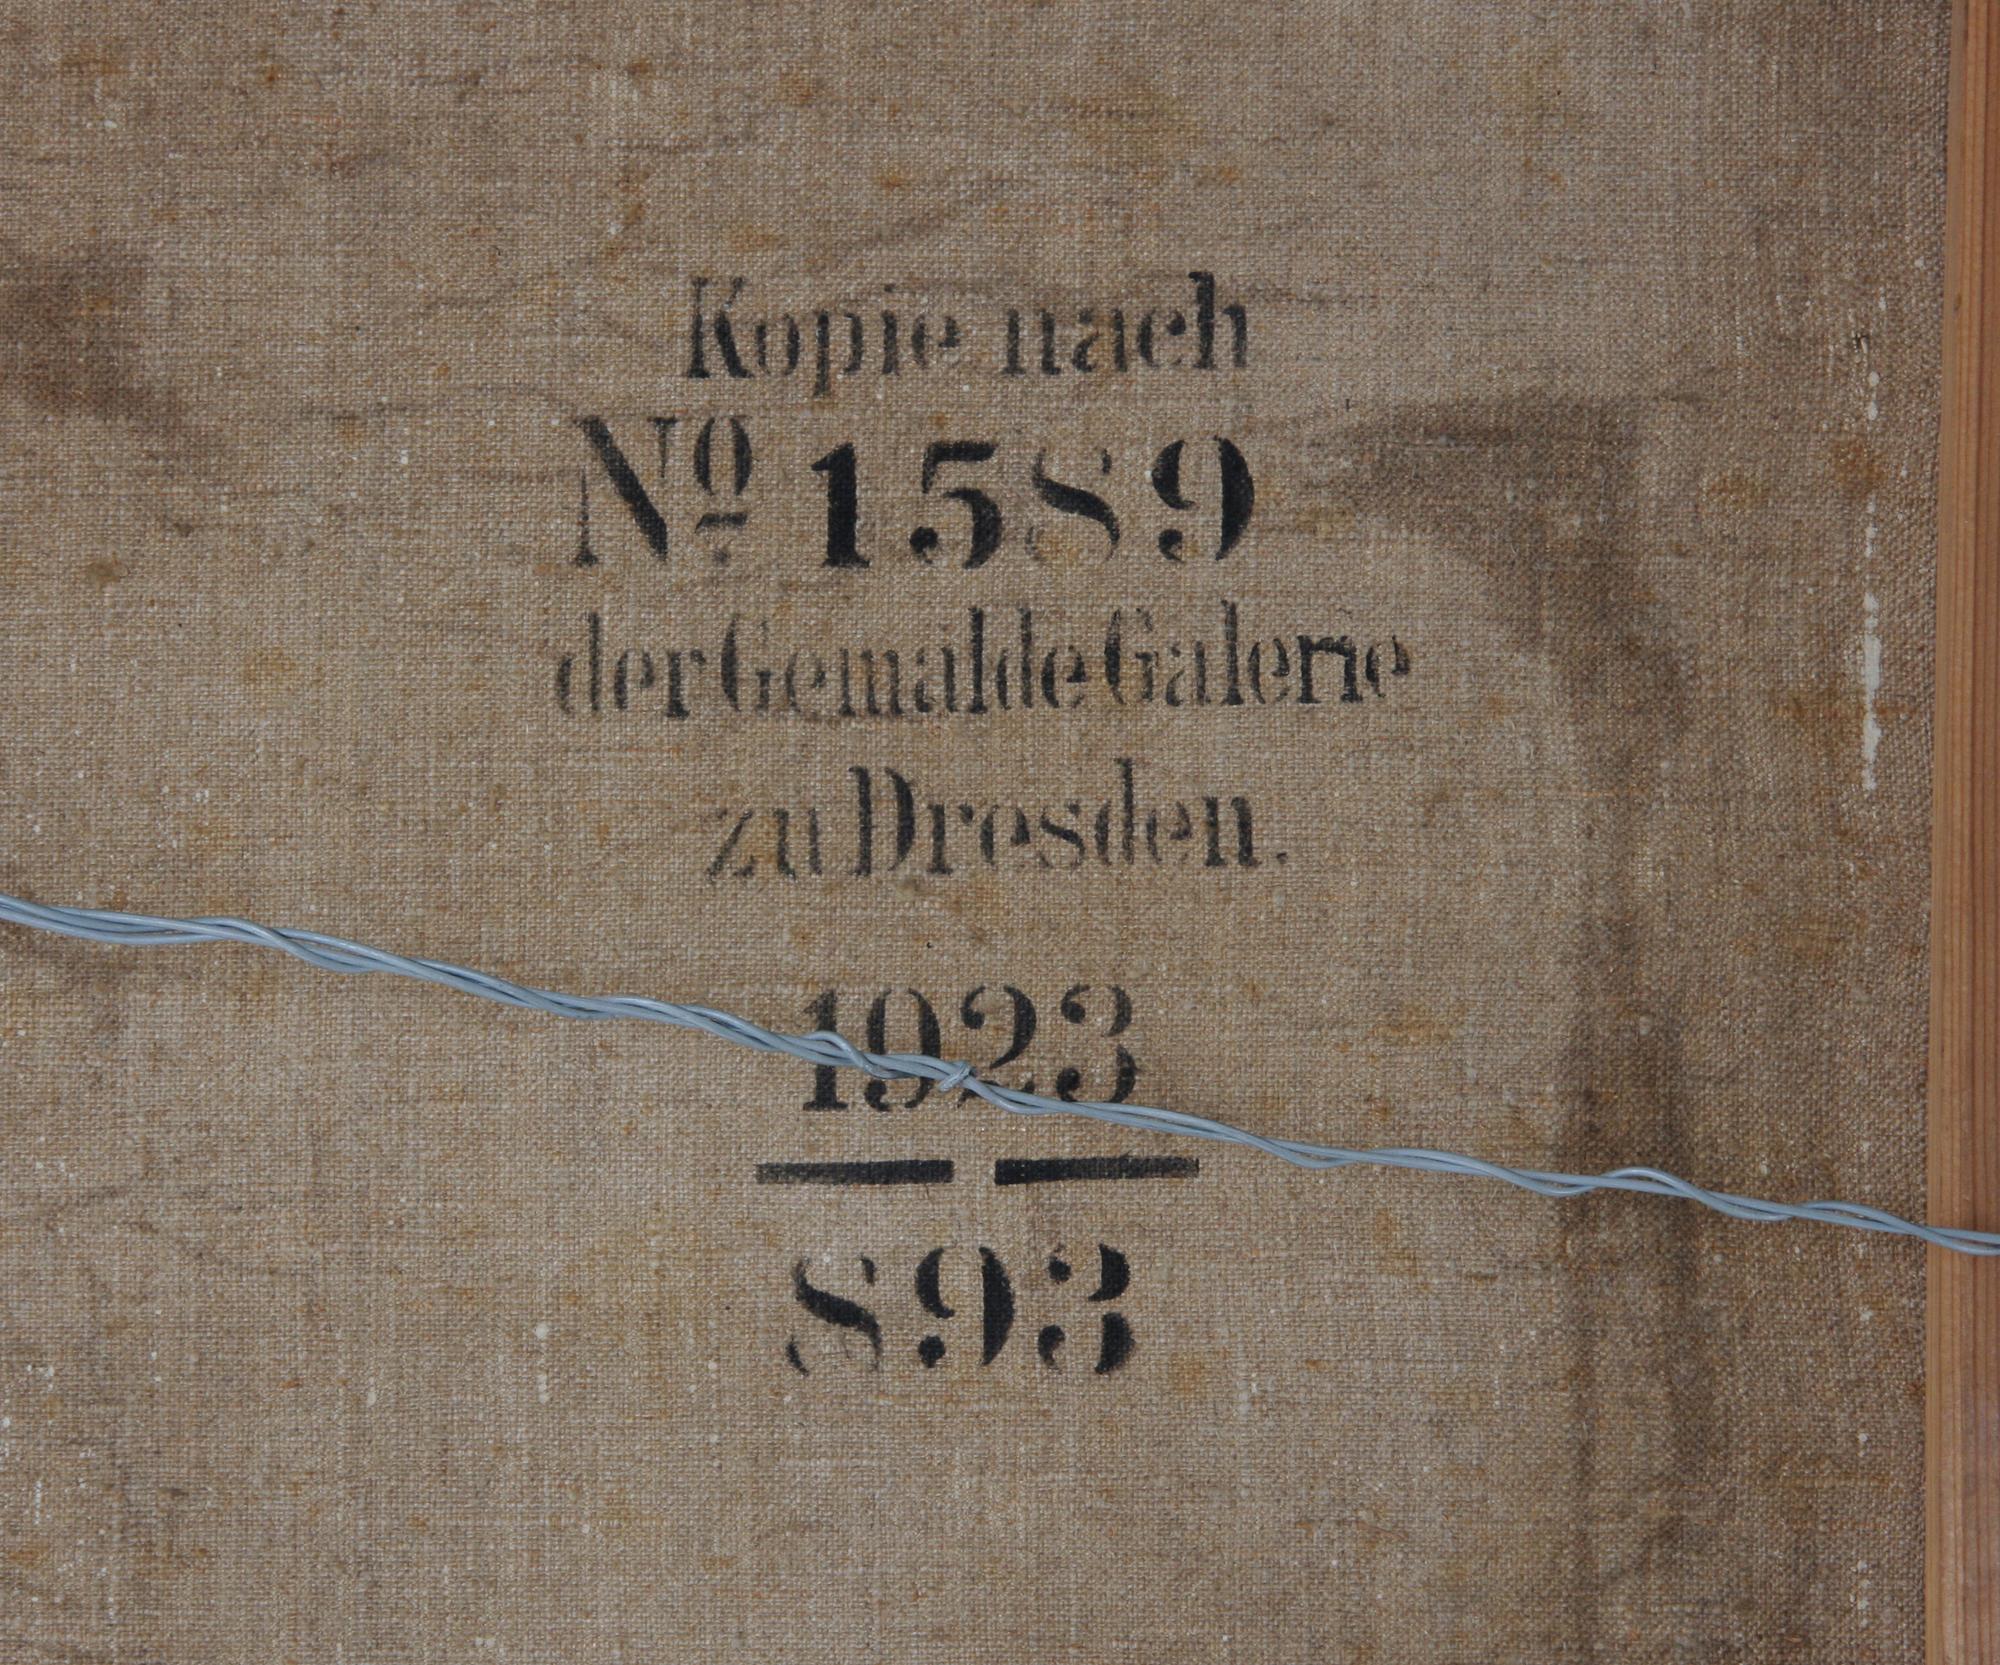 Kopie nach
Nº 1589
der Gemalde Galerie
zu Dresden.
1923
893